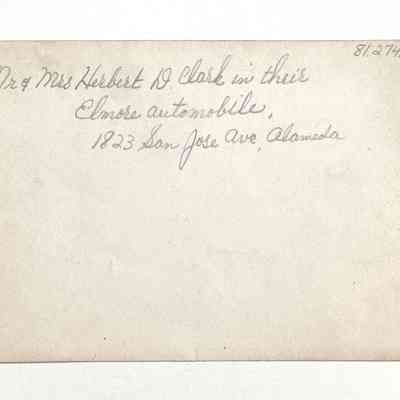 81.274
Mr & Mrs Herbert D. Clark in their
Elmore automobile,
1823 San Jose Ave, Alameda